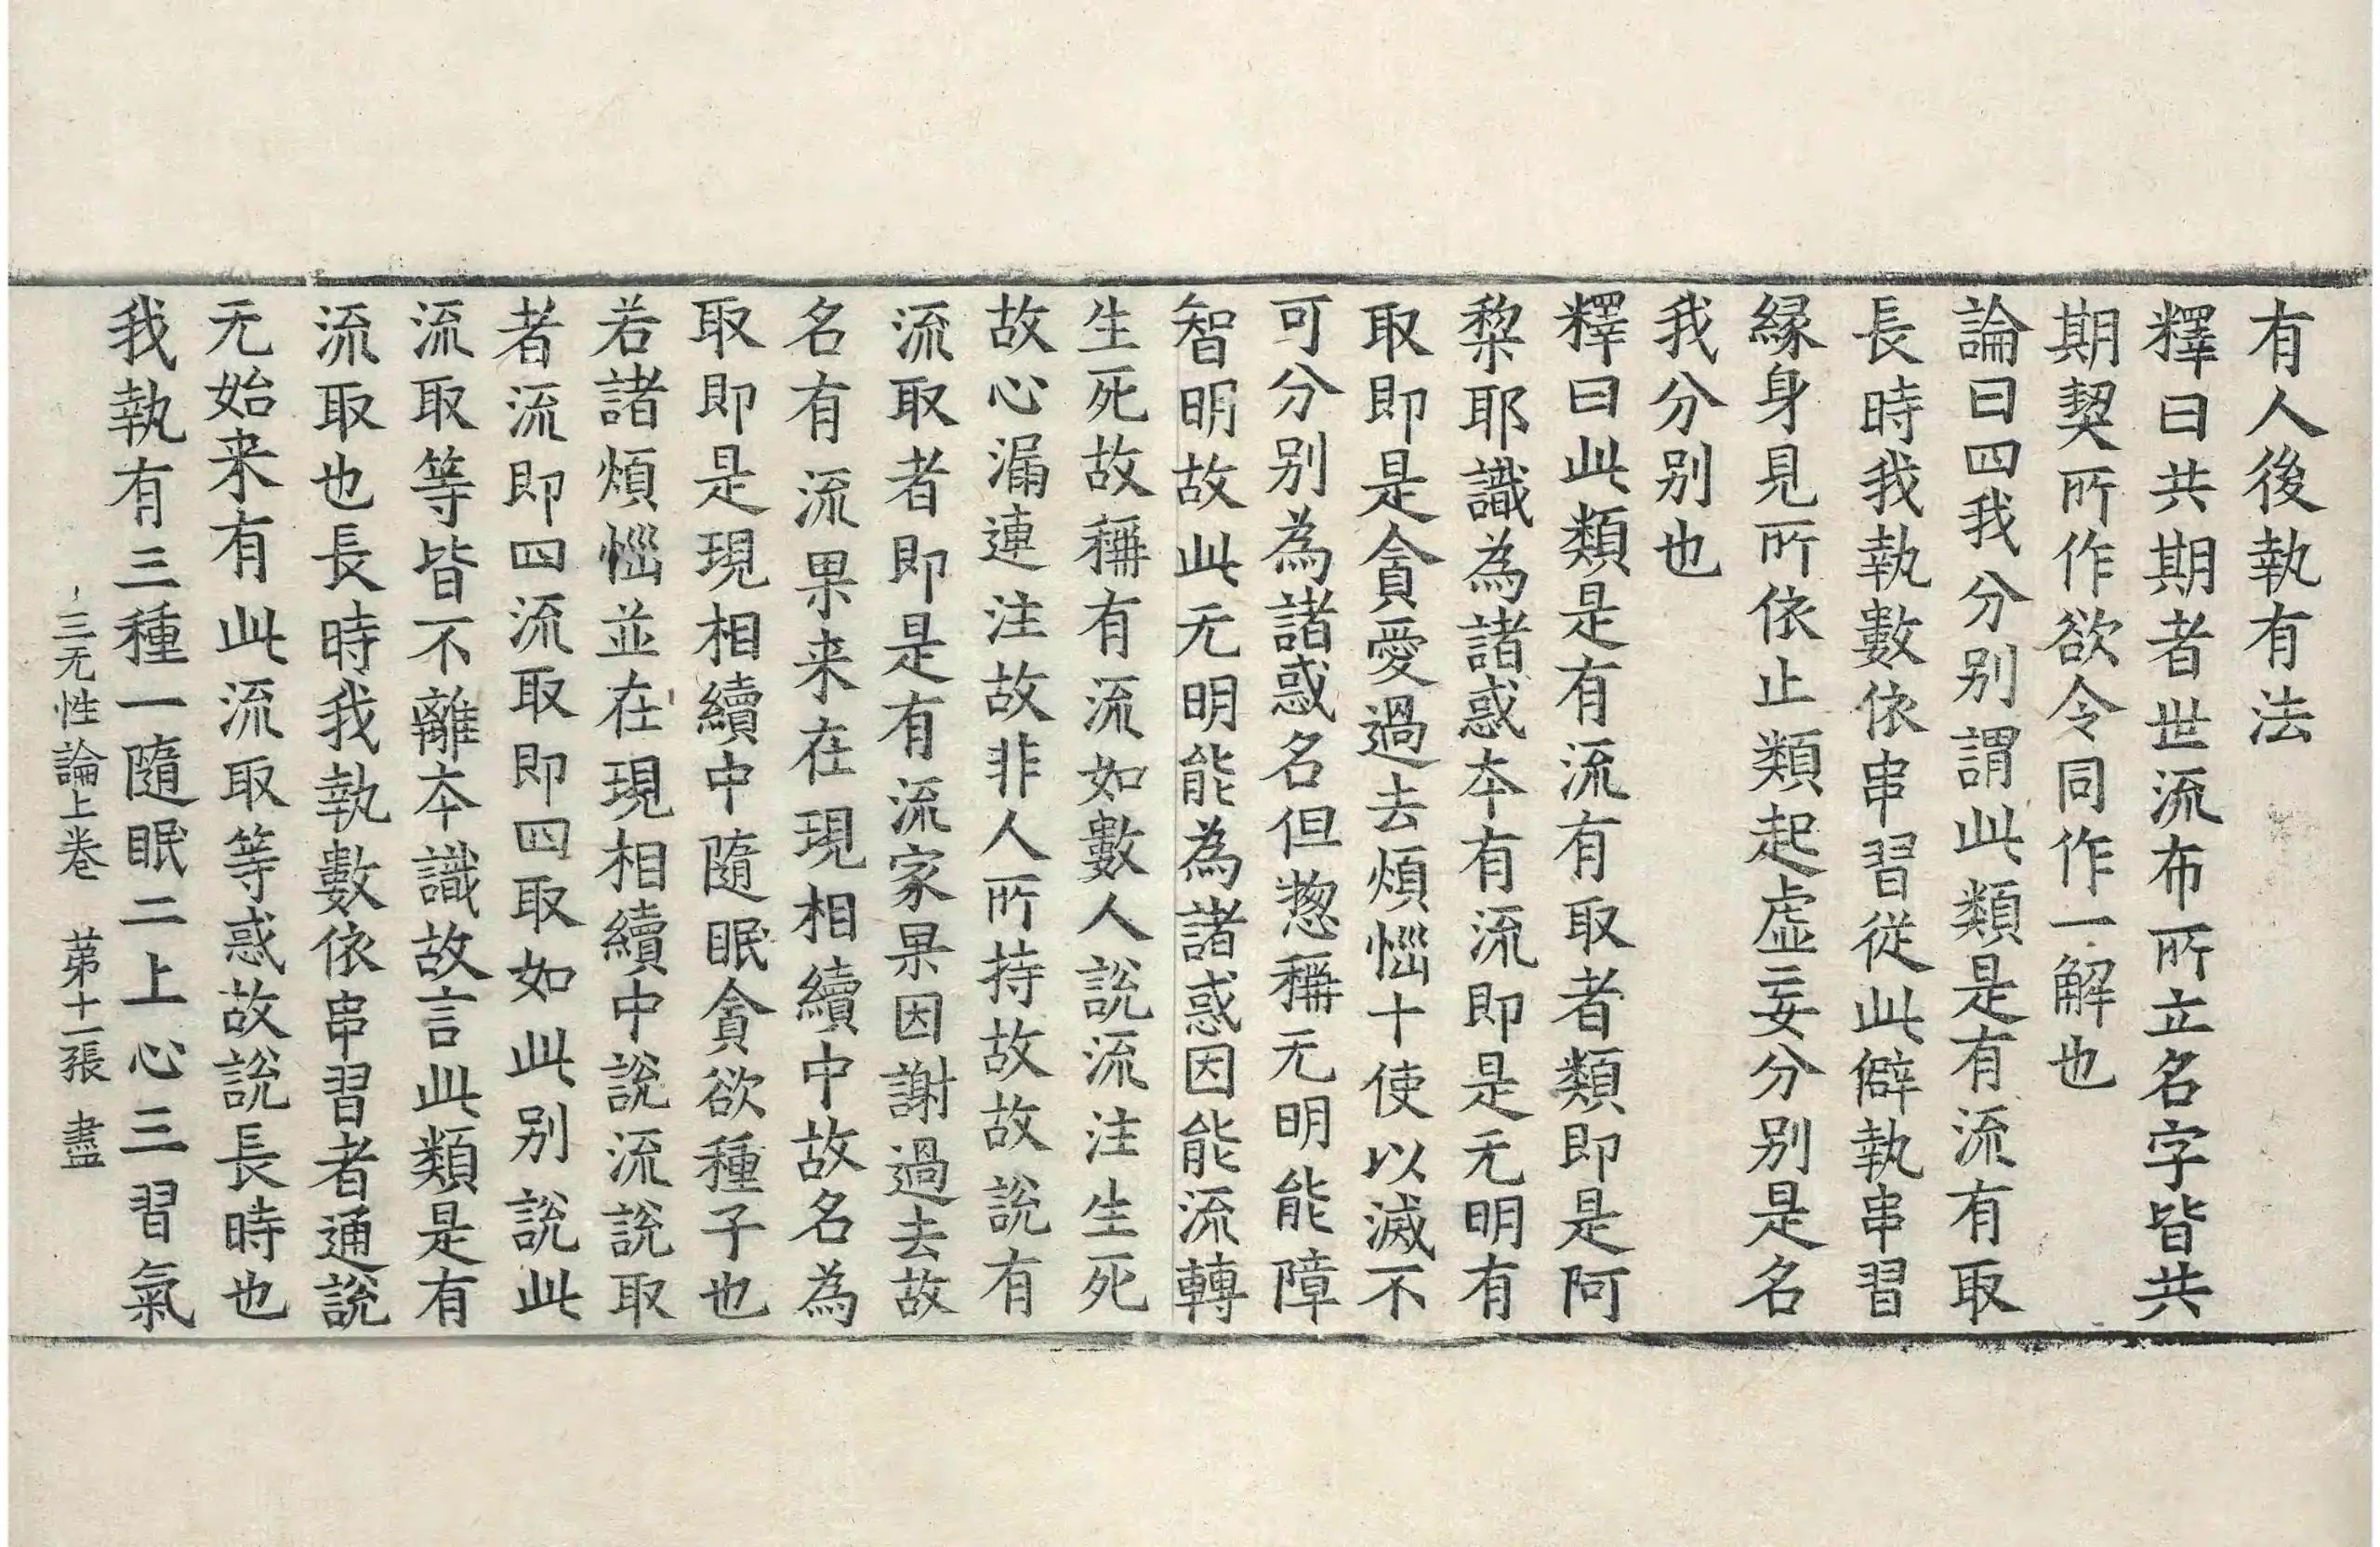 有人後執有法
釋曰共期者世流布所立名字皆共
期契所作欲令同作一解也
論曰四我分别謂此類是有流有取
長時我執數依串習從此僻執串習
縁身見所依止類起虛妄分别是名
我分别也
釋曰此類是有流有取者類即是阿
梨耶識為諸惑本有流即是无明有
取即是貪愛過去煩惱十使以滅不
可分别為諸惑名但惣稱无明能障
智明故此无明能為諸惑因能流轉
生死故稱有流如數人說流注生死
故心漏連注故非人所持故故說有
流取者即是有流家果因謝過去故
名有流果来在現相續中故名為
取即是現相續中隨眠貪欲種子也
若諸煩惱並在現相續中說流說取
者流即四流取即四取如此别說此
流取等皆不離本識故言此類是有
流取也長時我執數依串習者通說
无始来有此流取等惑故說長時也
我執有三種一隨眠二上心三習氣
三无性論上卷 苐十一張 盡